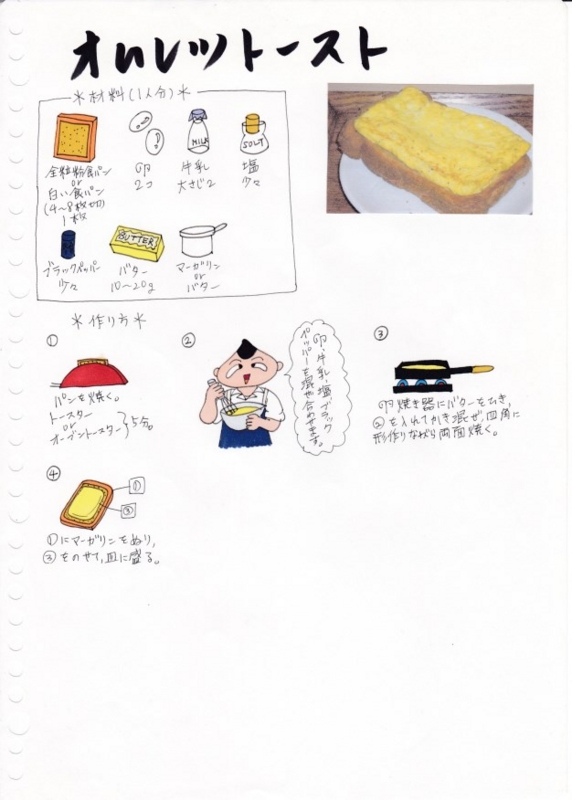 オムレツトースト
＊材料(1人分)＊
MILK
SOLT
全粒粉食パン
or
白い食パン
(4〜8枚切)
1枚
卵
2コ
牛乳
大さじ2
塩
少々
BUTTER
ブラックペッパー
少々
バター
10〜20g
マーガリン
or
バター
＊作り方＊
①
パンを焼く。
トースター
or
オーブントースター
5分。
②
卵・牛乳・塩・ブラック
ペッパーを混ぜ合わせます。
③
卵焼き器にバターをひき、
②を入れてかき混ぜ四角に
形作りながら両面焼く。
④
①
③
①にマーガリンをぬり、
③をのせて、皿に盛る。